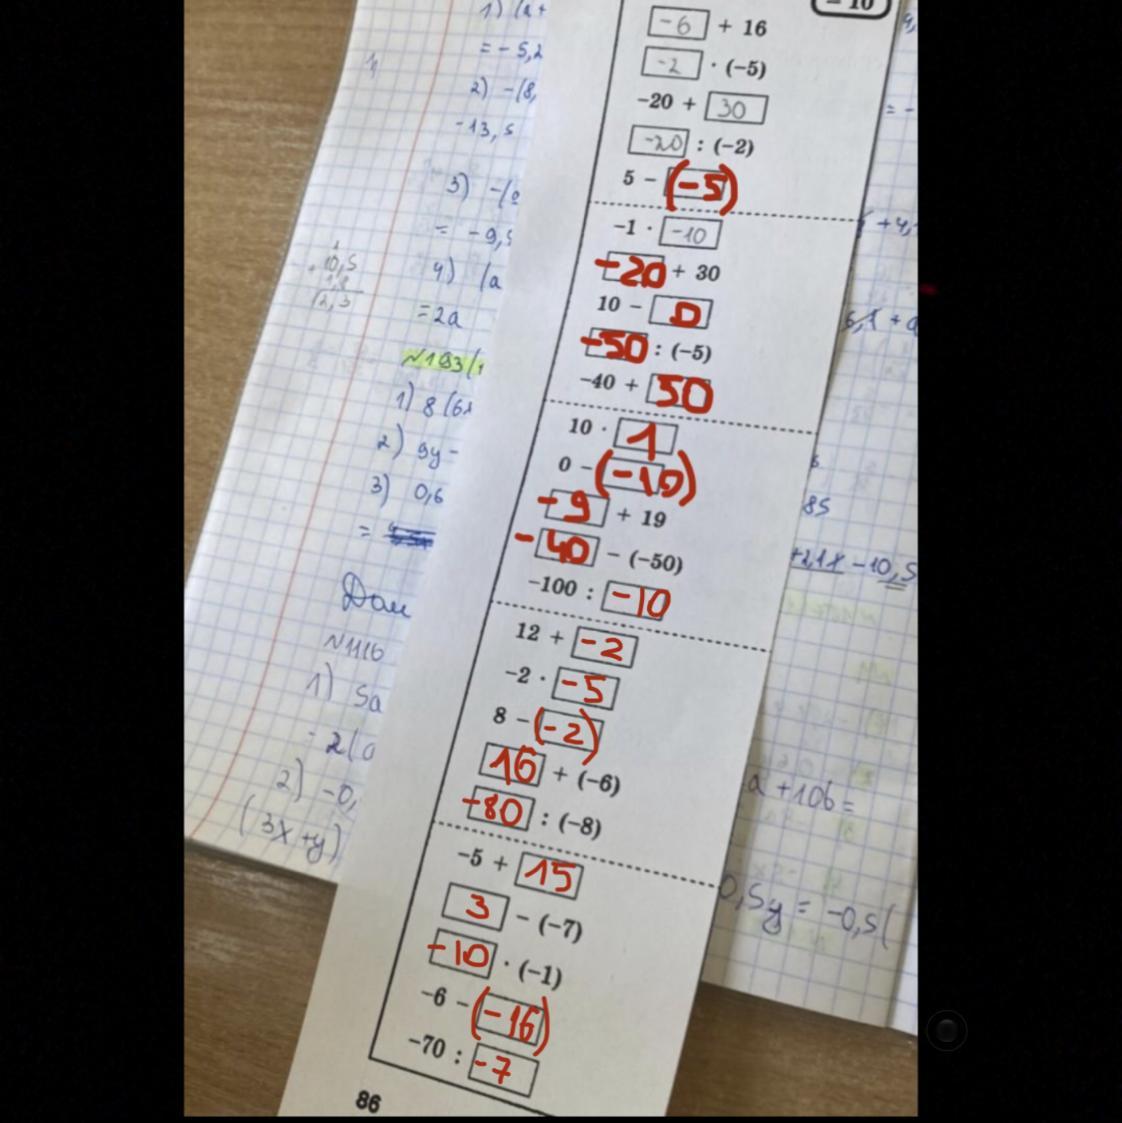 = 10
-6 + 16
-2 · (-5)
-20 + 30
-20 : (-2)
5 - (-5)
-1 · -10
-20 + 30
10 - 0
-50 : (-5)
-40 + 50
10 · 1
0 - (-10)
-9 + 19
-40 - (-50)
-100 : -10
12 + -2
-2 · -5
8 - (-2)
16 + (-6)
-80 : (-8)
-5 + 15
3 - (-7)
-10 · (-1)
-6 - (-16)
-70 : -7
86
1) (a +
= - 5,2
2) -(8,
-13,5
3) -(
= - 9,
4) (a
= 2a
10,5
1,8
12,3
№193(1
1) 8 (6x
2) 9y -
3) 0,6
=
Dом
№1116
1) 5a
- 2(
2) -0,
(3x+y)
+ 4,
85
+2,1x - 10,5
a + 10b =
0,5y = -0,5(